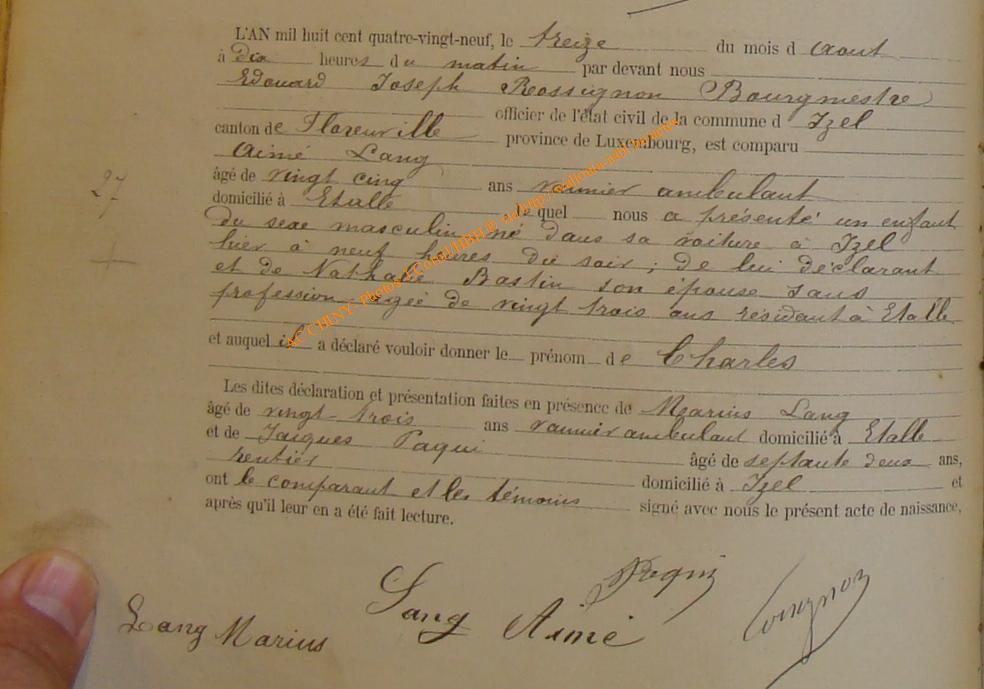 L'AN mil huit cent quatre-vingt-neuf, le treize du mois d aout
à dix heures du matin par devant nous
Edouard Joseph Rossignon Bourgmestre
officier de l'état civil de la commune d Izel
canton de Florenville province de Luxembourg, est comparu
Aimé Lang
âgé de vingt cinq ans vannier ambulant
domicilié à Etalle lequel nous a présenté un enfant
27
du sexe masculin, né dans sa voiture à Izel
hier à neuf heures du soir; de lui déclarant
et de Nathalie Bastin son épouse sans
profession agée de vingt trois ans résidant à Etalle
et auquel il a déclaré vouloir donner le prénom de Charles
Les dites déclaration et présentation faites en présence de Marius Lang
âgé de vingt-trois ans vannier ambulant domicilié à Etalle
et de Jacques Paqui âgé de septante deux ans,
rentier domicilié à Izel et
ont le comparant et les témoins signé avec nous le présent acte de naissance,
après qu'il leur en a été fait lecture.
Lang Aimé
Lang Marius
AC CHINY - Photos